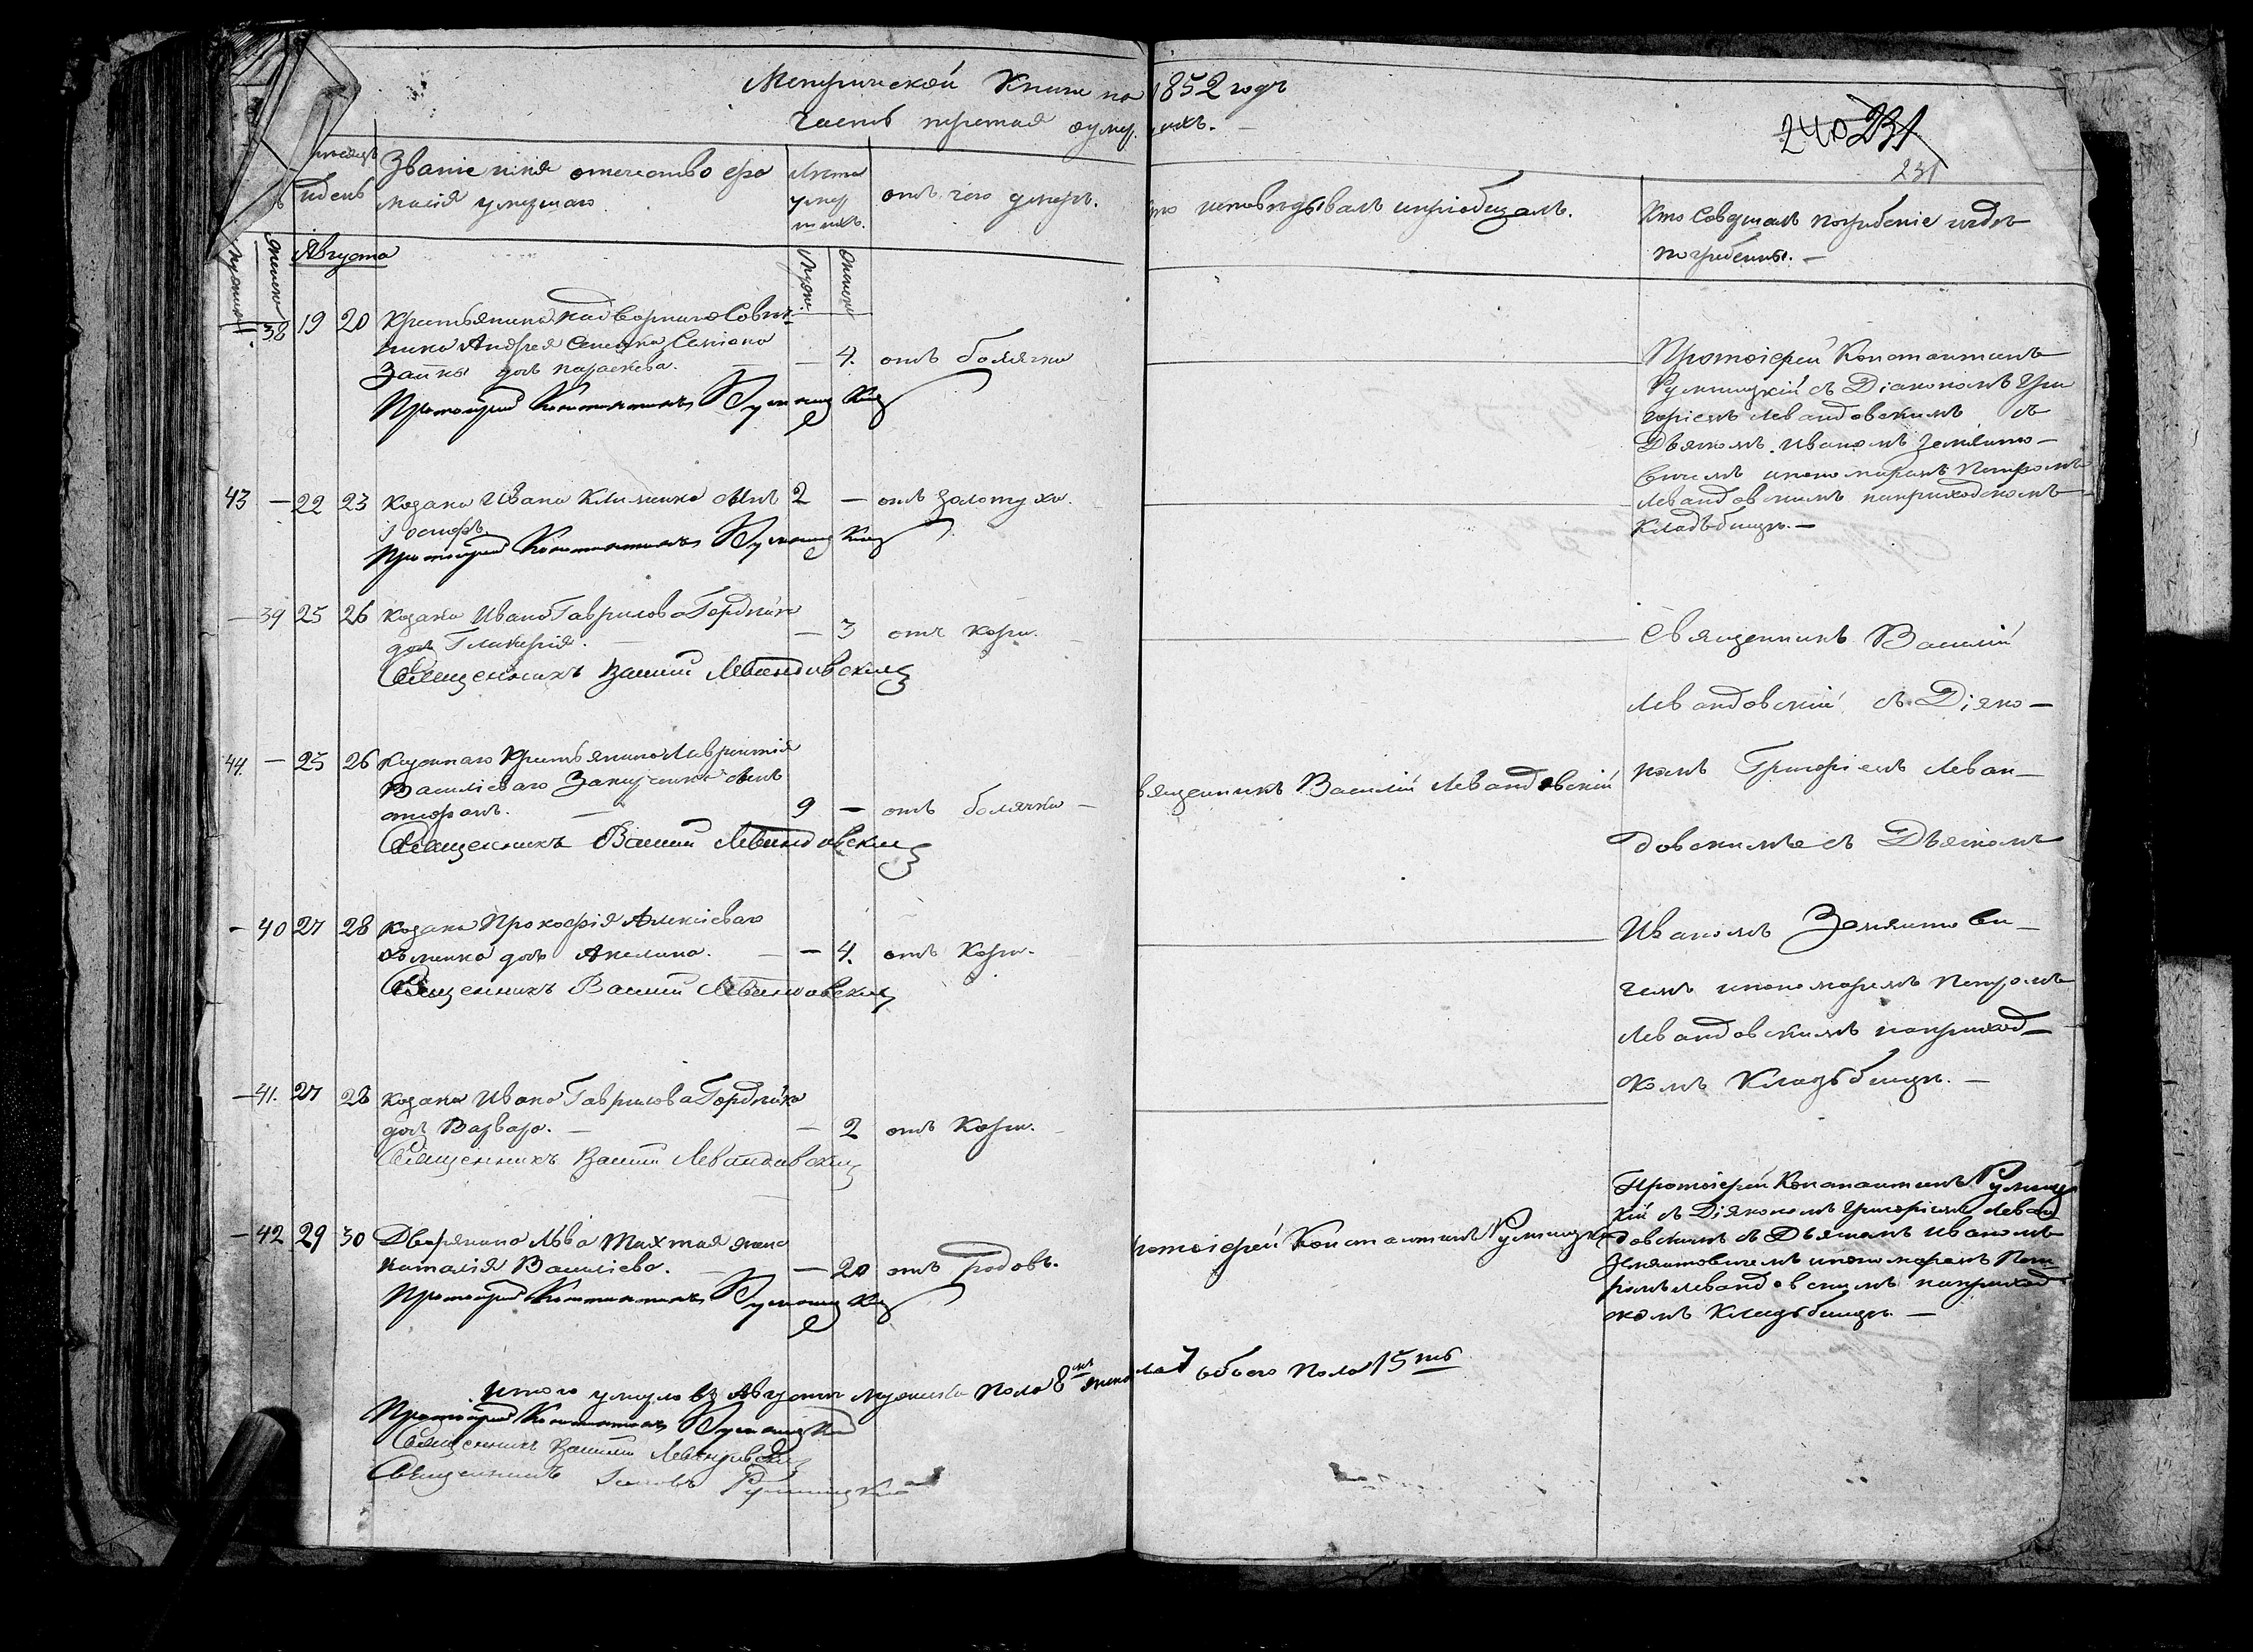 Метрической Книги на 1852 годъ
Часть третая оумершихъ. —
240 231
231
месяцъ
и день
Званіе имя отечество фа
милія умершаго
Лѣта
умер
шихъ.
отъ чего умеръ.
кто исповѣдывалъ и пріобщалъ.
Кто Совершалъ погребеніе и гдѣ
погребены. —
Августа
— 38 19 20 Крестьянина надворнаго Совет-
ника Андрея Семена
Заики дочь параскева. — 4. отъ болячки
Протоіерей Константинъ Румницкій
Протоіерей Константинъ
Румницкій съ Діакономъ Гри
горіемъ Левандовскимъ съ
Дьячкомъ Иваномъ Земянто-
вичемъ и пономаремъ Петромъ
Левандовскимъ на приходскомъ
Кладьбищѣ. —
43 — 22 23 Козака Ивана Клименка сынъ 2 — отъ золотухи.
Іосифъ.
Протоіерей Константинъ Румницкій
— 39 25 26 Козака Ивана Гаврилова Гордѣйка
дочь Гликерія. — 3 отъ кори.
Священникъ Василій Левандовскій
Священникъ Василій
Левандовскій съ Діяко-
номъ Григоріемъ Леван-
довскимъ съ Дьячкомъ
Иваномъ Земянтови-
чемъ и пономаремъ Петромъ
Левандовскимъ на приход-
комъ Кладьбищѣ. —
44. — 25 26 Крестьянина Лаврентія
Василіеваго сынъ
9 — отъ болячки —
Священникъ Василій Левандовскій
вященникъ Василій Левандовскій
— 40 27 28 Козака Прокофія Алексіеваго
дочь Акелина. — 4. отъ Кори.
Священникъ Василій Левандовскій
— 41. 27 28 Козака Ивана Гаврилова Гордѣйка
дочь Варвара. — 2 отъ Кори.
Священникъ Василій Левандовскій
— 42 29 30 Дворянина Льва жена
Наталія Василіева. — 20 отъ Родовъ.
Протоіерей Константинъ Румницкій
ротоіерей Константинъ Румницкій
Протоіерей Константинъ Румниц
кій съ Діякономъ Григоріемъ Леван
довскимъ съ Дьячкомъ Иваномъ
Земянтовичемъ и пономаремъ Пет
ромъ Левандовскимъ на приход
комъ Кладьбищѣ. —
Итого умерло въ Августѣ мужеска пола 8 женска 7 обоего пола 15ть
Протоіерей Константинъ Румницкій
Священникъ Василій Левандовскій
Священникъ Румницкій